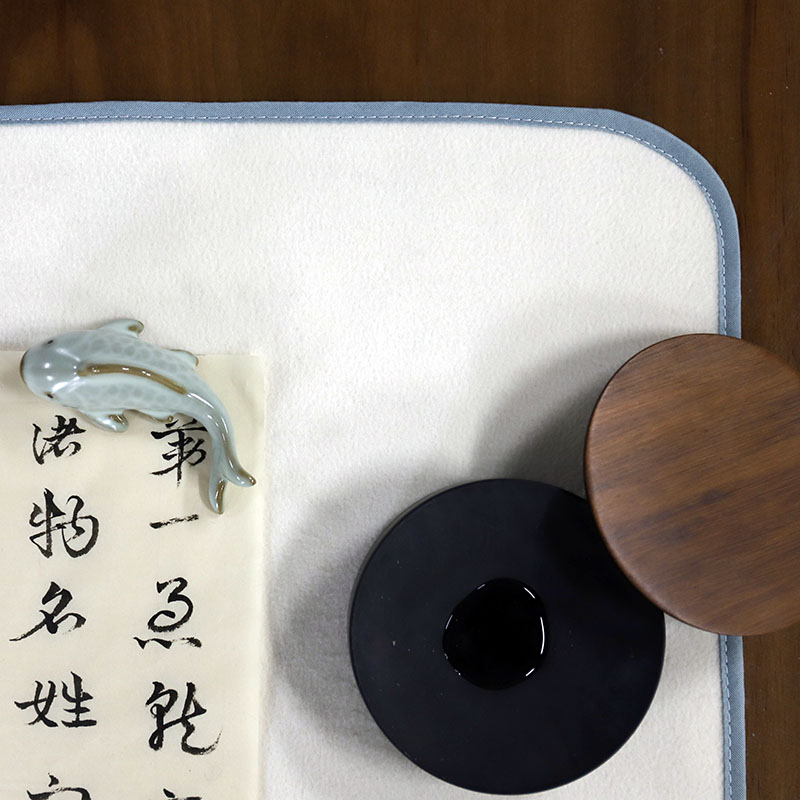 第一急就
諸物名姓